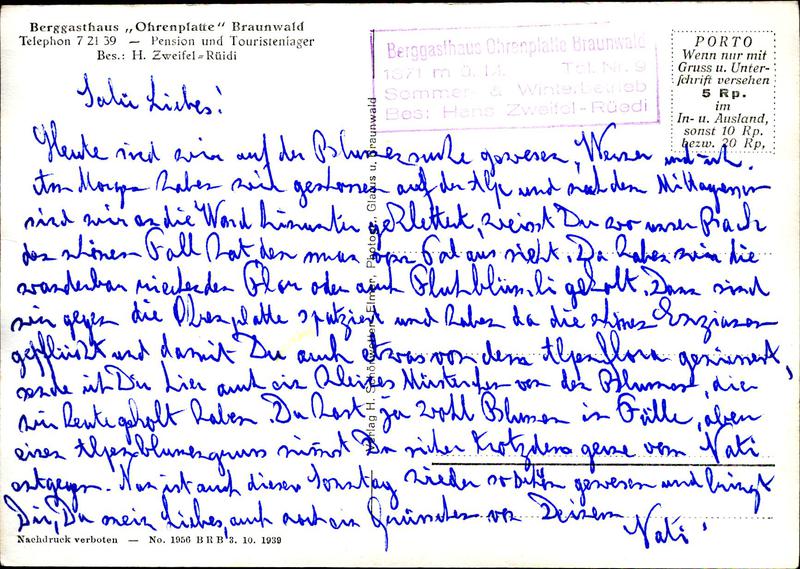 Berggasthaus „Ohrenplatte“ Braunwald
Telephon 7 21 39 — Pension und Touristenlager
Bes.: H. Zweifel-Rüidi
Berggasthaus Ohrenplatte Braunwald
1671 m ü. M. Tel. Nr. 9
Sommer- & Winterbetrieb
Bes: Hans Zweifel-Rüedi
PORTO
Wenn nur mit
Gruss u. Unter-
schrift versehen
5 Rp.
im
In- u. Ausland,
sonst 10 Rp.
bezw. 20 Rp.
Salü Liebes!
Heute sind wir auf der Blumensuche gewesen, Werner und ich.
Am Morgen haben wir genossen auf der Alp und nach dem Mittagessen
sind wir an die Wand hinunter geklettert, weisst Du wo unser Bach
den schönen Fall hat den man vom Tal aus sieht. Da haben wir die
wunderbar riechenden Flor oder auch Fluhblüemli geholt. Dann sind
wir gegen die Ohrenplatte spaziert und haben da die schönen Enzianen
gepflückt und damit Du auch etwas von dem Alpenflora geniessest,
sende ich Dir hier auch ein kleines Müsterchen von den Blumen, die
wir heute geholt haben. Du hast ja wohl Blumen in Fülle, aber
einen Alpenblumengruss nimmst Du sicher trotzdem gerne vom Nati
entgegen. Nun ist auch dieser Sonntag wieder so schön gewesen und bringt
Dir, Du mein Liebes, auch noch ein Grüsschen von Deinem
Nati!
Verlag H. Schönwetter-Elmer, Photogr., Glarus u. Braunwald
Nachdruck verboten — No. 1956 B R B 3. 10. 1939